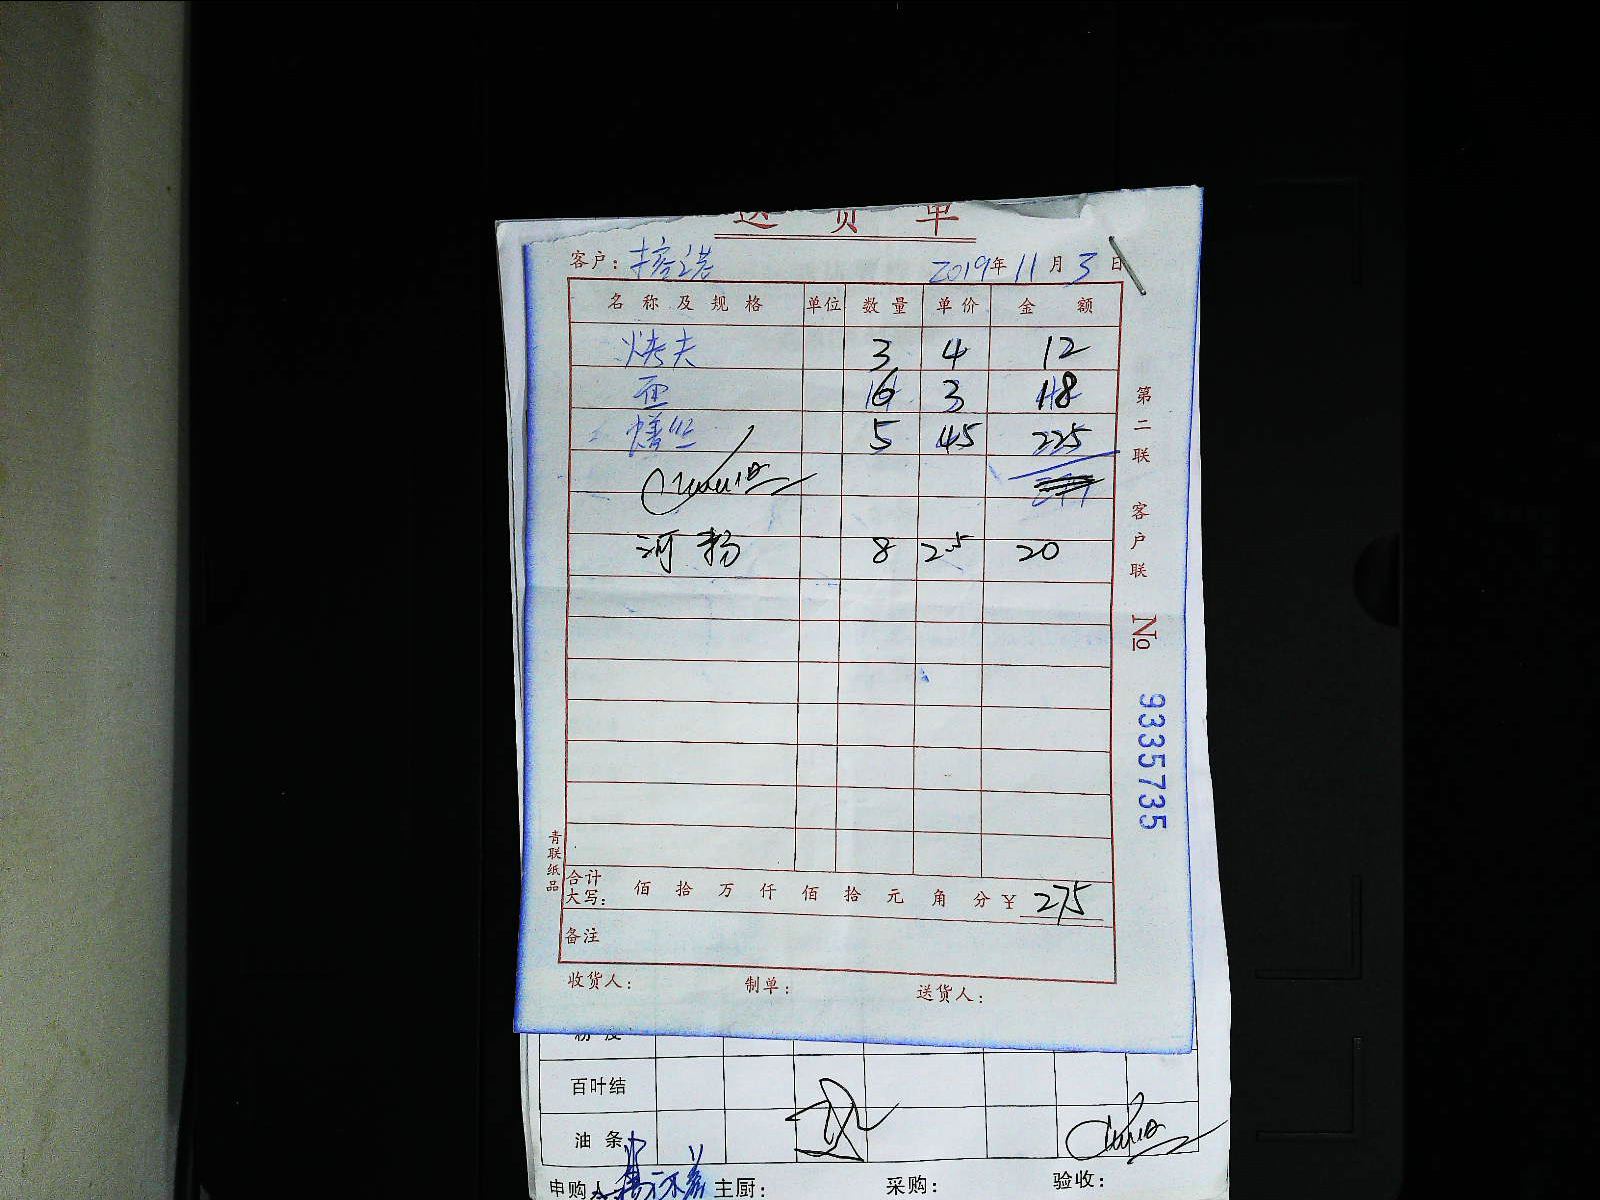 送货单
客户：
2019年11月3日
名称及规格 单位 数量 单价 金额
烤夫 3 4 12
面 6 3 18
鳝丝 5 45 225
河粉 8 2.5 20
合计大写： 佰 拾 万 仟 佰 拾 元 角 分 ¥ 275
备注
收货人： 制单： 送货人：
第二联 客户联 No 9335735
青联纸品
百叶结
油条
申购人 主厨： 采购： 验收：